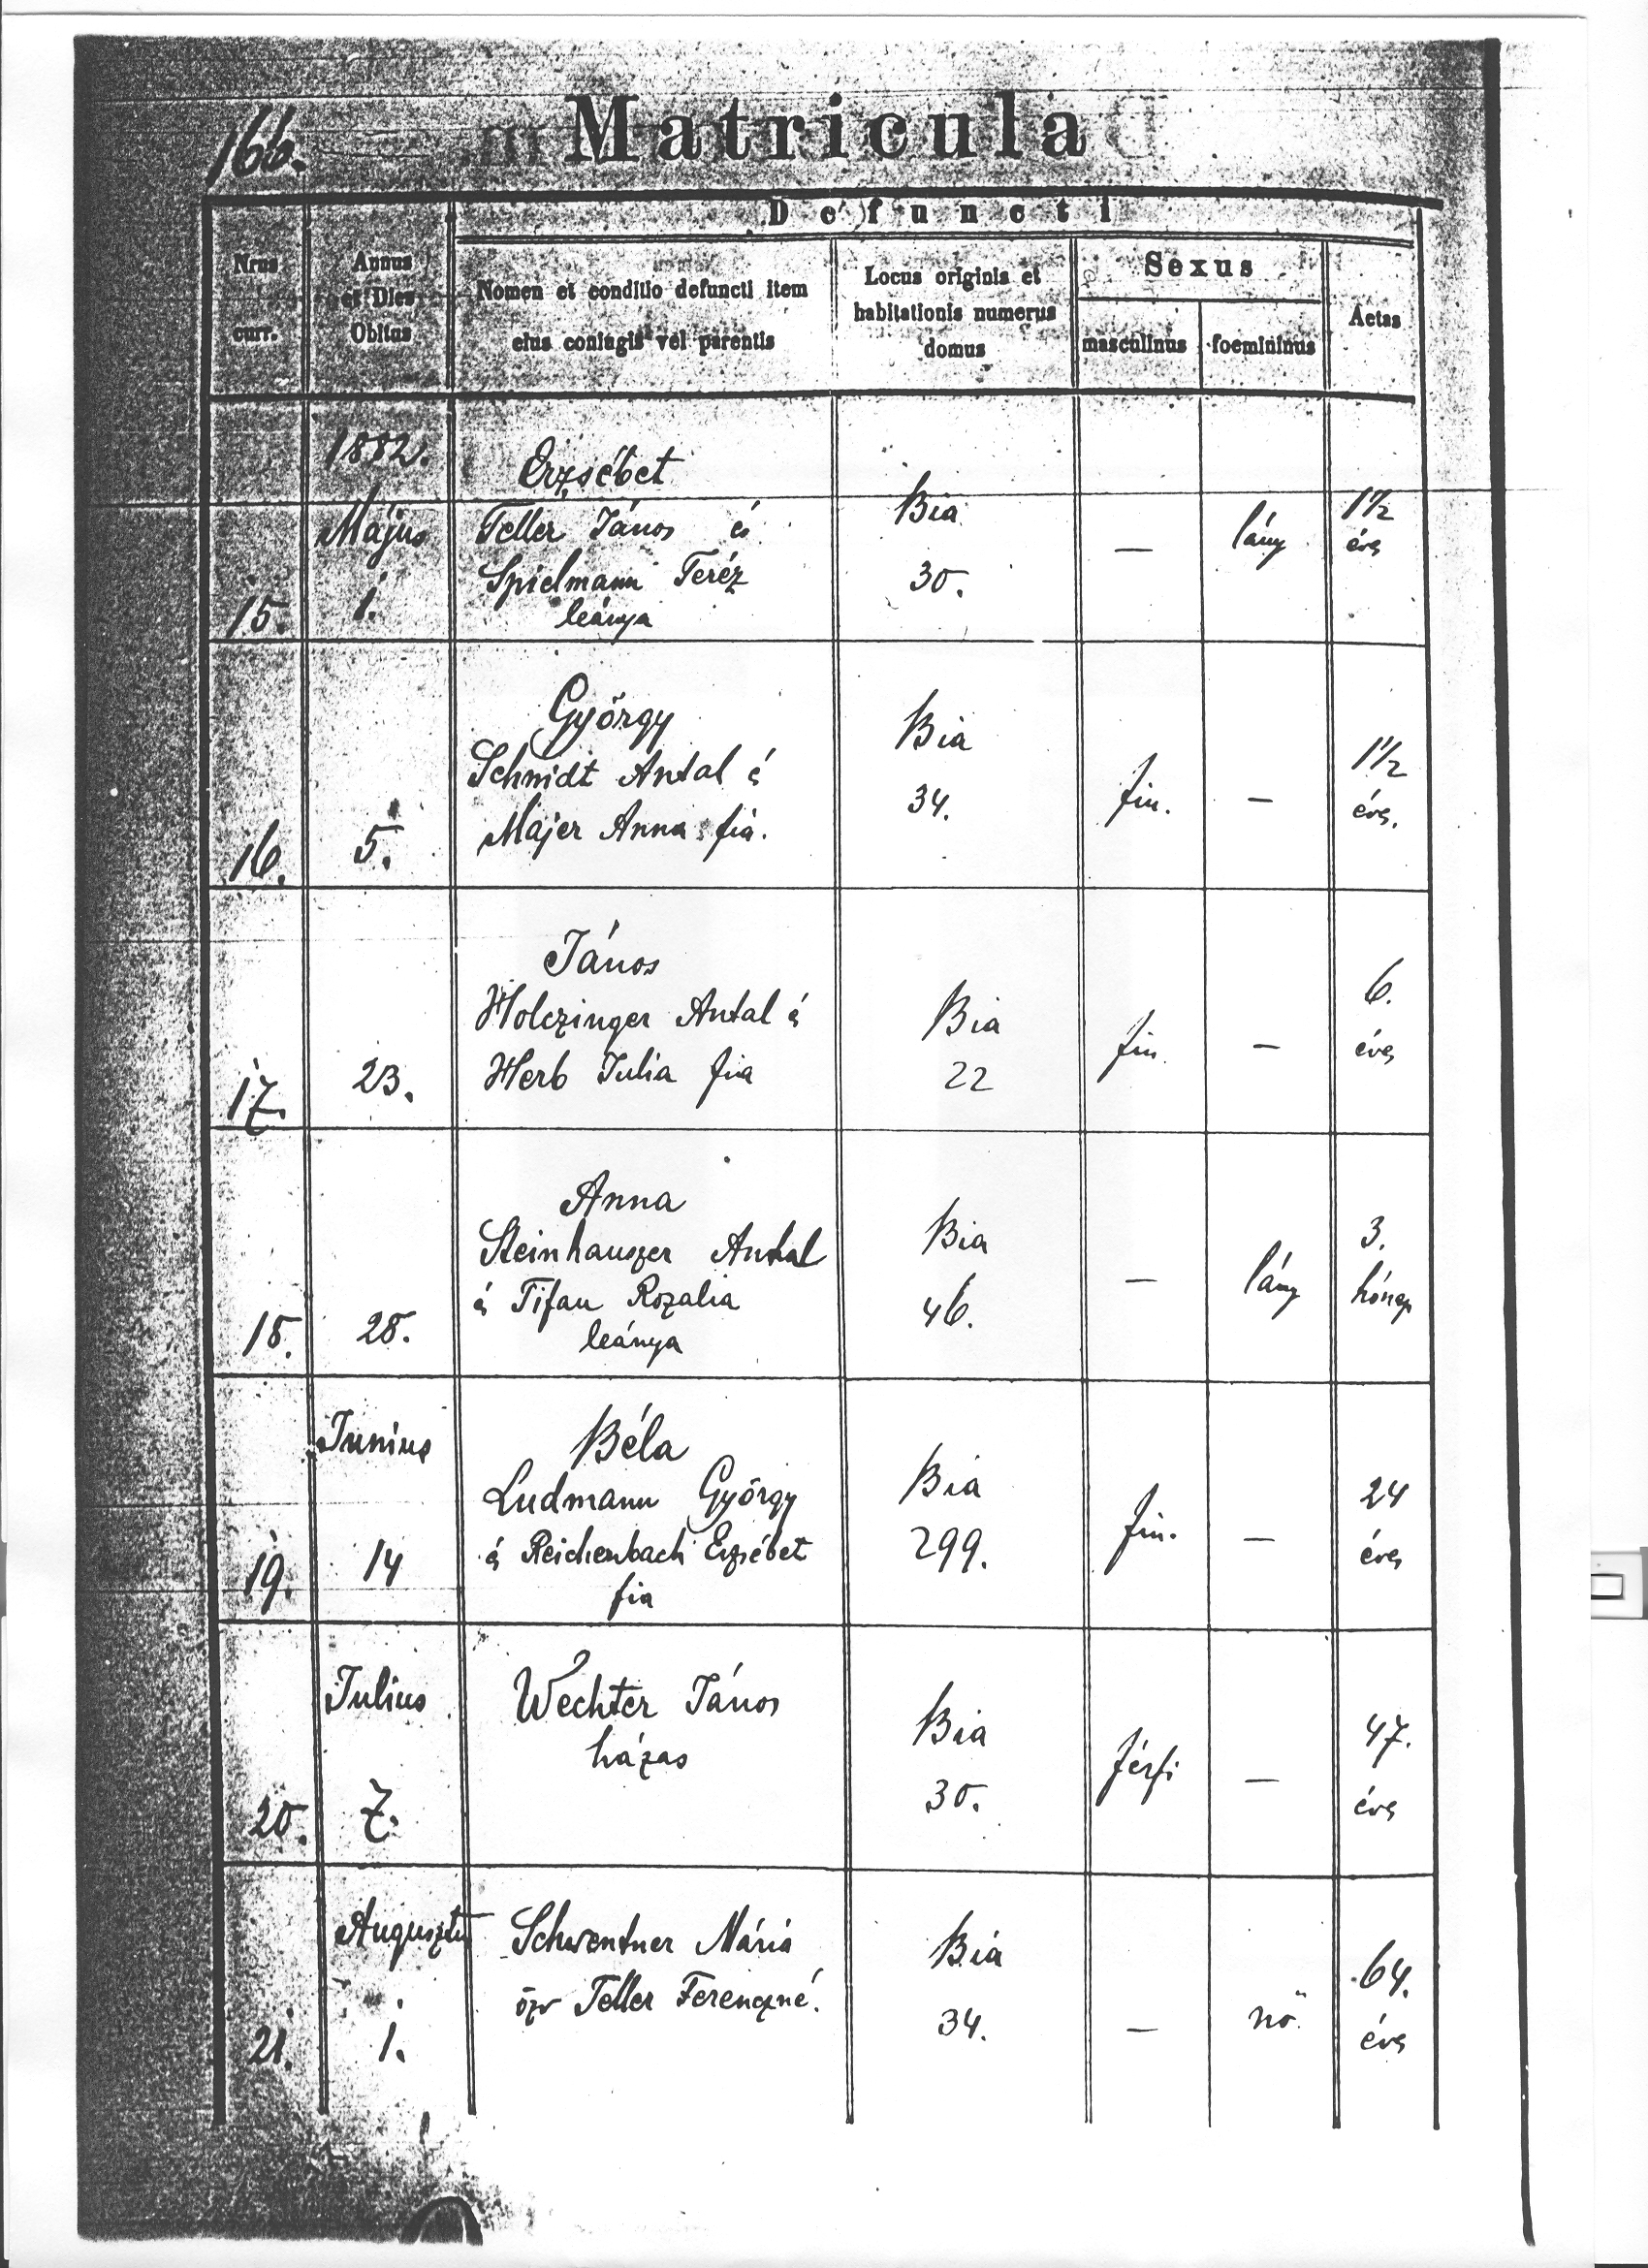 166.
Matricula
Defuncti
Nrus curr.
Annus et Dies Obitus
Nomen et conditio defuncti item eius coniugis vel parentis
Locus originis et habitationis numerus domus
Sexus
masculinus
foemininus
Aetas
1882.
Május
15.
1.
Erzsébet
Teller János és
Spielmann Teréz
leánya
Bia
30.
—
lány
1 1/2
éves
16.
5.
György
Schmidt Antal é
Majer Anna fia.
Bia
34.
fiu.
—
1 1/2
éves.
17.
23.
János
Holczinger Antal é
Herb Julia fia
Bia
22
fiu
—
6.
éves
18.
28.
Anna
Steinhauszer Antal
é Tifan Rozalia
leánya
Bia
46.
—
lány
3.
hónap
Junius
19.
14
Béla
Ludmann György
é Reichenbach Erzsébet
fia
Bia
299.
fiu.
—
24
éves
Julius
20.
7.
Wechter János
házas
Bia
30.
férfi
—
47.
éves
Augusztus
21.
1.
Schwentner Mária
özv Teller Ferenczné.
Bia
34.
—
nő
64.
éves